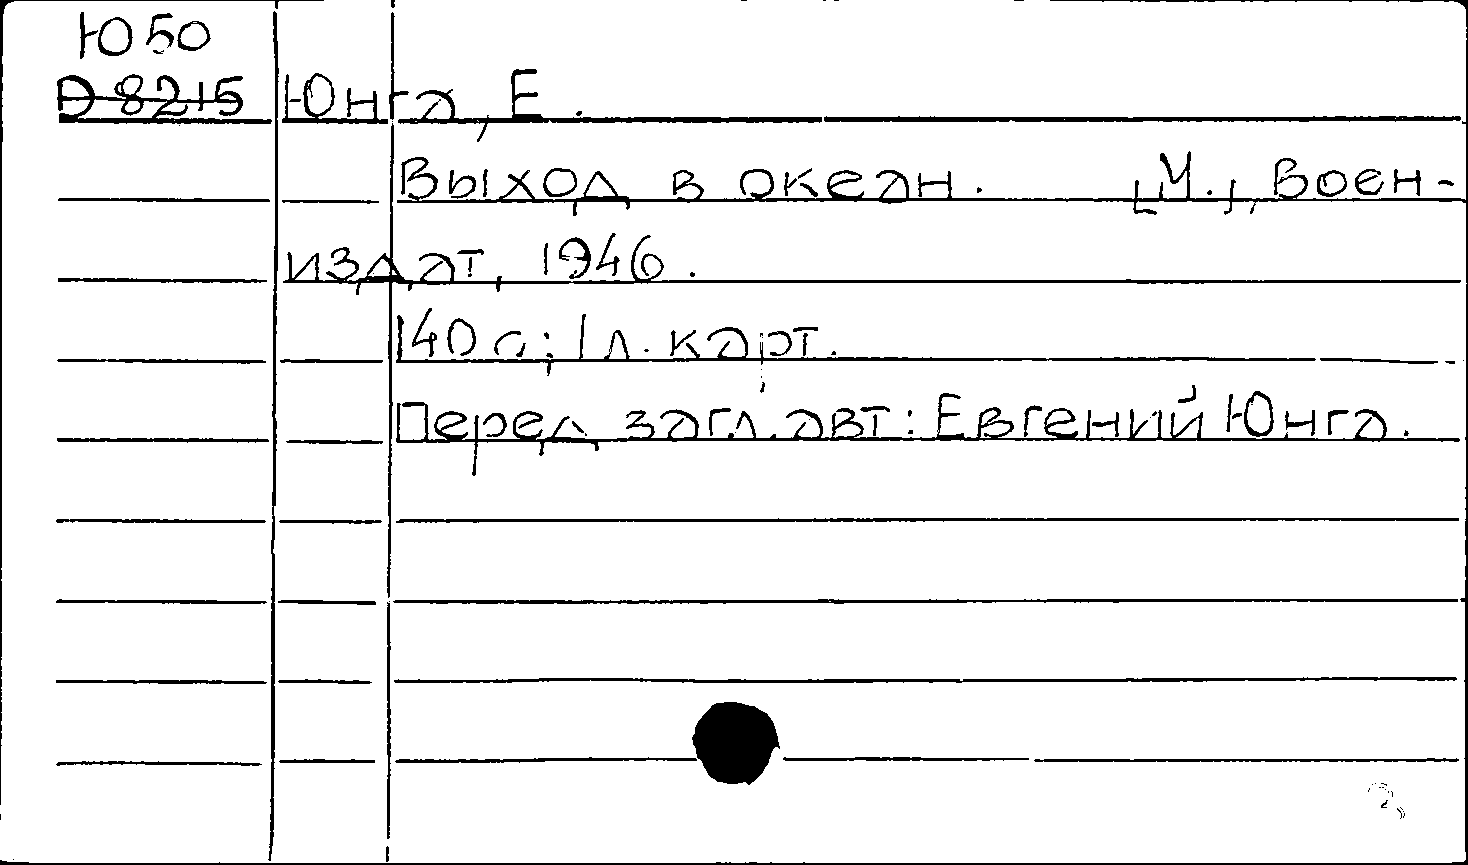 Ю50
D 8215
Юнга, Е.
Выход в океан. [М.], Воен-
издат, 1946.
140 с; 1 л. карт.
Перед загл. авт: Евгений Юнга.